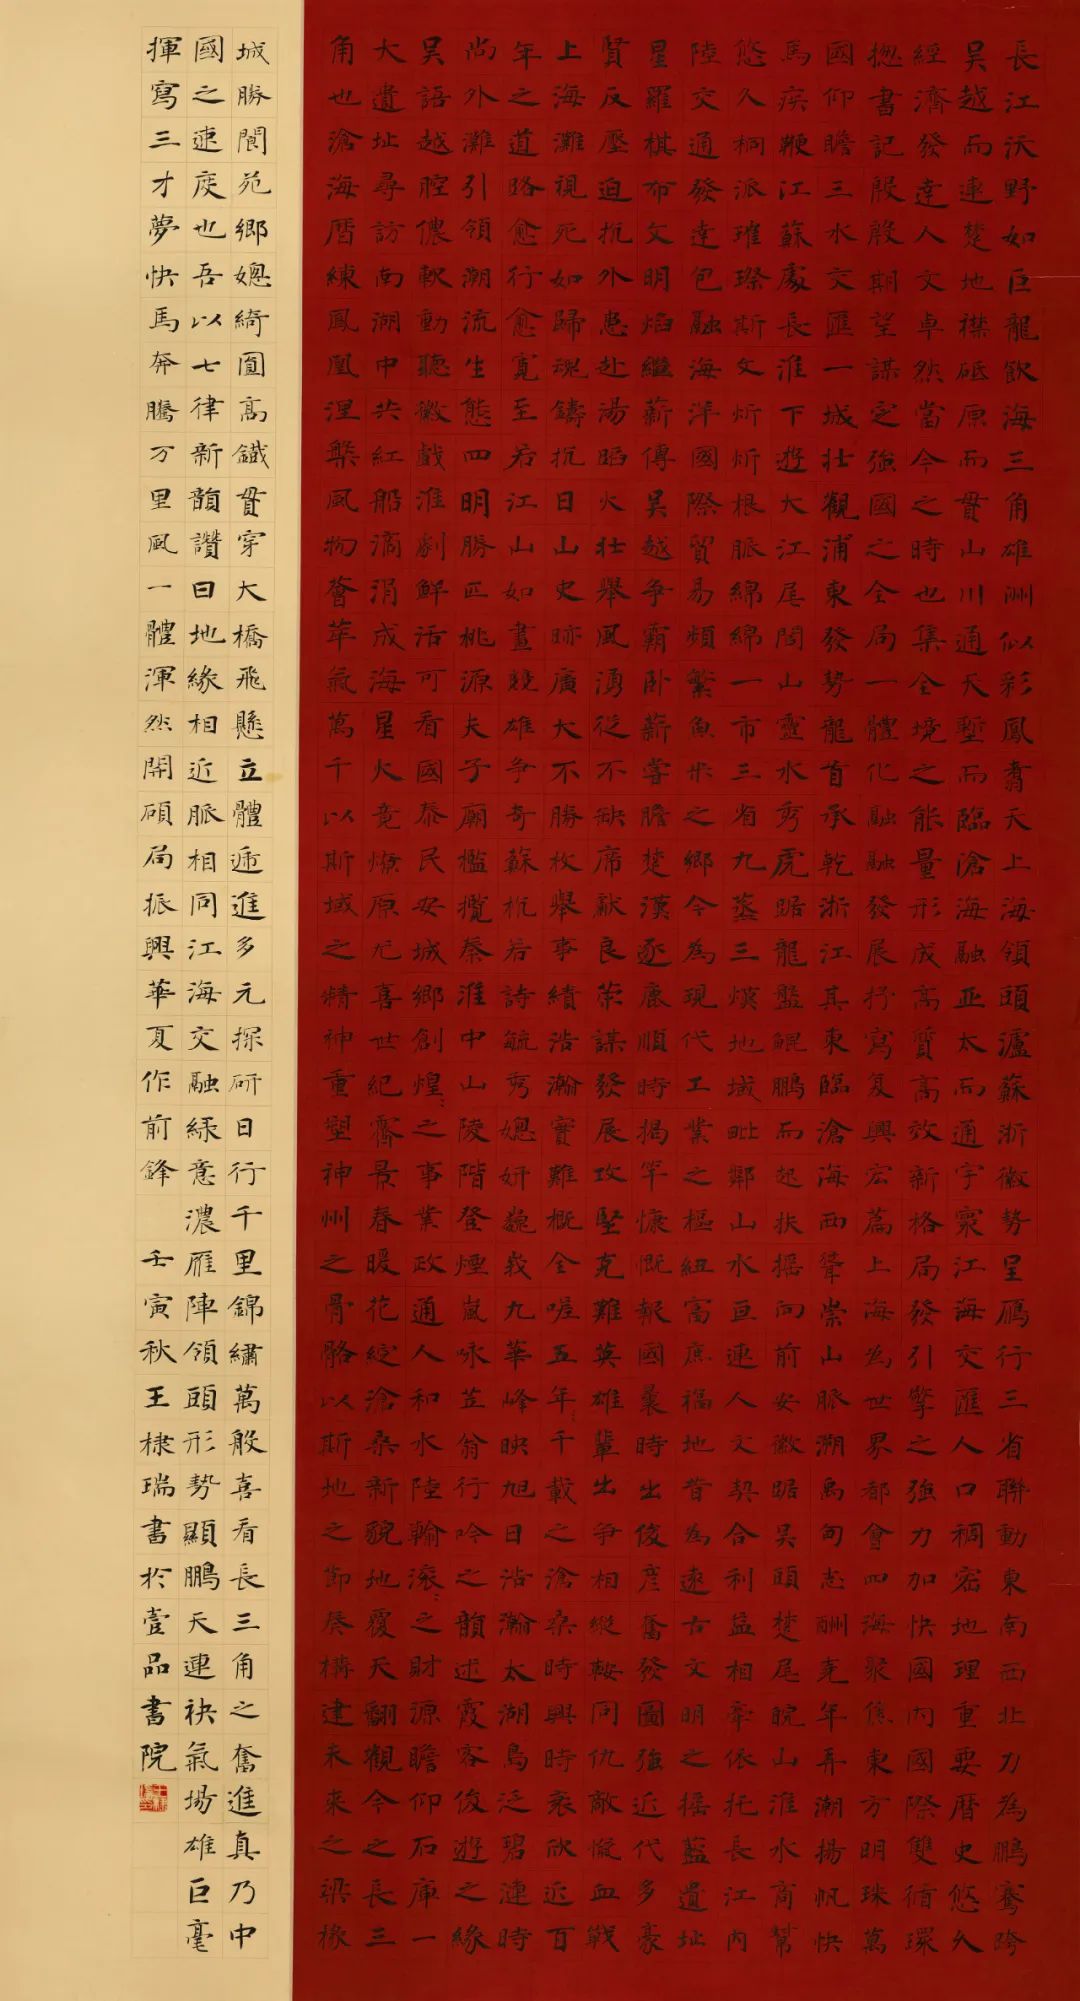 長江沃野如巨龍飲海三角雄洲似彩鳳翥天上海領頭瀘蘇浙徽勢呈雁行三省聯動東南西北力為鵬騫跨
吴越而連楚地襟砥原而貫山川通天塹而臨滄海融亚太而通宇寰江海交匯人口稠密地理重要曆史悠久
經濟發達人文卓然當今之時也集全境之能量形成高質高效新格局發引擎之強力加快國內國際雙循環
摠書記殷殷期望謀定強國之全局一體化融融發展抒寫复興宏篇上海為世界都會四海聚焦東方明珠萬
國仰瞻三水交匯一城壯觀浦東發勢龍首承乾浙江其東臨滄海西聳崇山脈溯禹甸志酬堯年弄潮揚帆快
馬疾鞭江蘇處長淮下遊大江尾閭山靈水秀虎踞龍盤鯤鵬而起扶摇向前安徽踞吴頭楚尾皖山淮水商幫
悠久桐派璀璨斯文炘炘根脈綿綿一市三省九葢三塻地域毗鄰山水亘連人文契合利益相牽依托長江內
陸交通發達包融海洋國際貿易頻繁魚米之鄉今為現代工業之樞紐富庶福地昔為遠古文明之摇藍遺址
星羅棋布文明焰繼薪傳吴越争霸卧薪嘗膽楚漢逐鹿順時揭竿慷慨報國曩時出俊彦奮發圖強近代多豪
賢反壓迫抗外患赴湯蹈火壯舉風湧從不缺席献良策謀發展攻堅克難英雄輩出争相縱鞍同仇敵愾血戰
上海灘視死如歸魂鑄抗日山史跡廣大不勝枚舉事績浩瀚實難概全嗟五年千載之滄桑時興時衰欣近百
年之道路愈行愈寬至若江山如畫競雄争奇蘇杭若詩毓秀媲妍巍峩九華峰映旭日浩瀚太湖鳥泛碧漣時
尚外灘引領潮流生態四明勝匹桃源夫子廟檻攬秦淮中山陵階登煙嵐咏笠翁行吟之韻述霞客俊遊之緣
吴語越腔儂軟動聽徽戲淮劇鮮活可看國泰民安城鄉創煌之事業政通人和水陸輸滚之財源瞻仰石庫一
大遺址尋訪南湖中共紅船滴涓成海星火竟燎原尤喜世紀霽景春暖花綻滄桑新貌地覆天翻觀今之長三
角也滄海曆練鳳凰涅槃風物薈萃氣萬千以斯域之精神重塑神州之骨骼以斯地之節奏構建未來之梁椽
城勝閬苑鄉媲綺園高鐵貫穿大橋飛懸立體遞進多元探研日行千里錦繡萬般喜看長三角之奮進真乃中
國之速度也吾以七律新韻讚曰地緣相近脈相同江海交融绿意濃雁陣領頭形勢顯鵬天連袂氣場雄巨毫
揮寫三才夢快馬奔騰万里風一體渾然開碩局振興華夏作前鋒 壬寅秋王棣瑞書於壹品書院